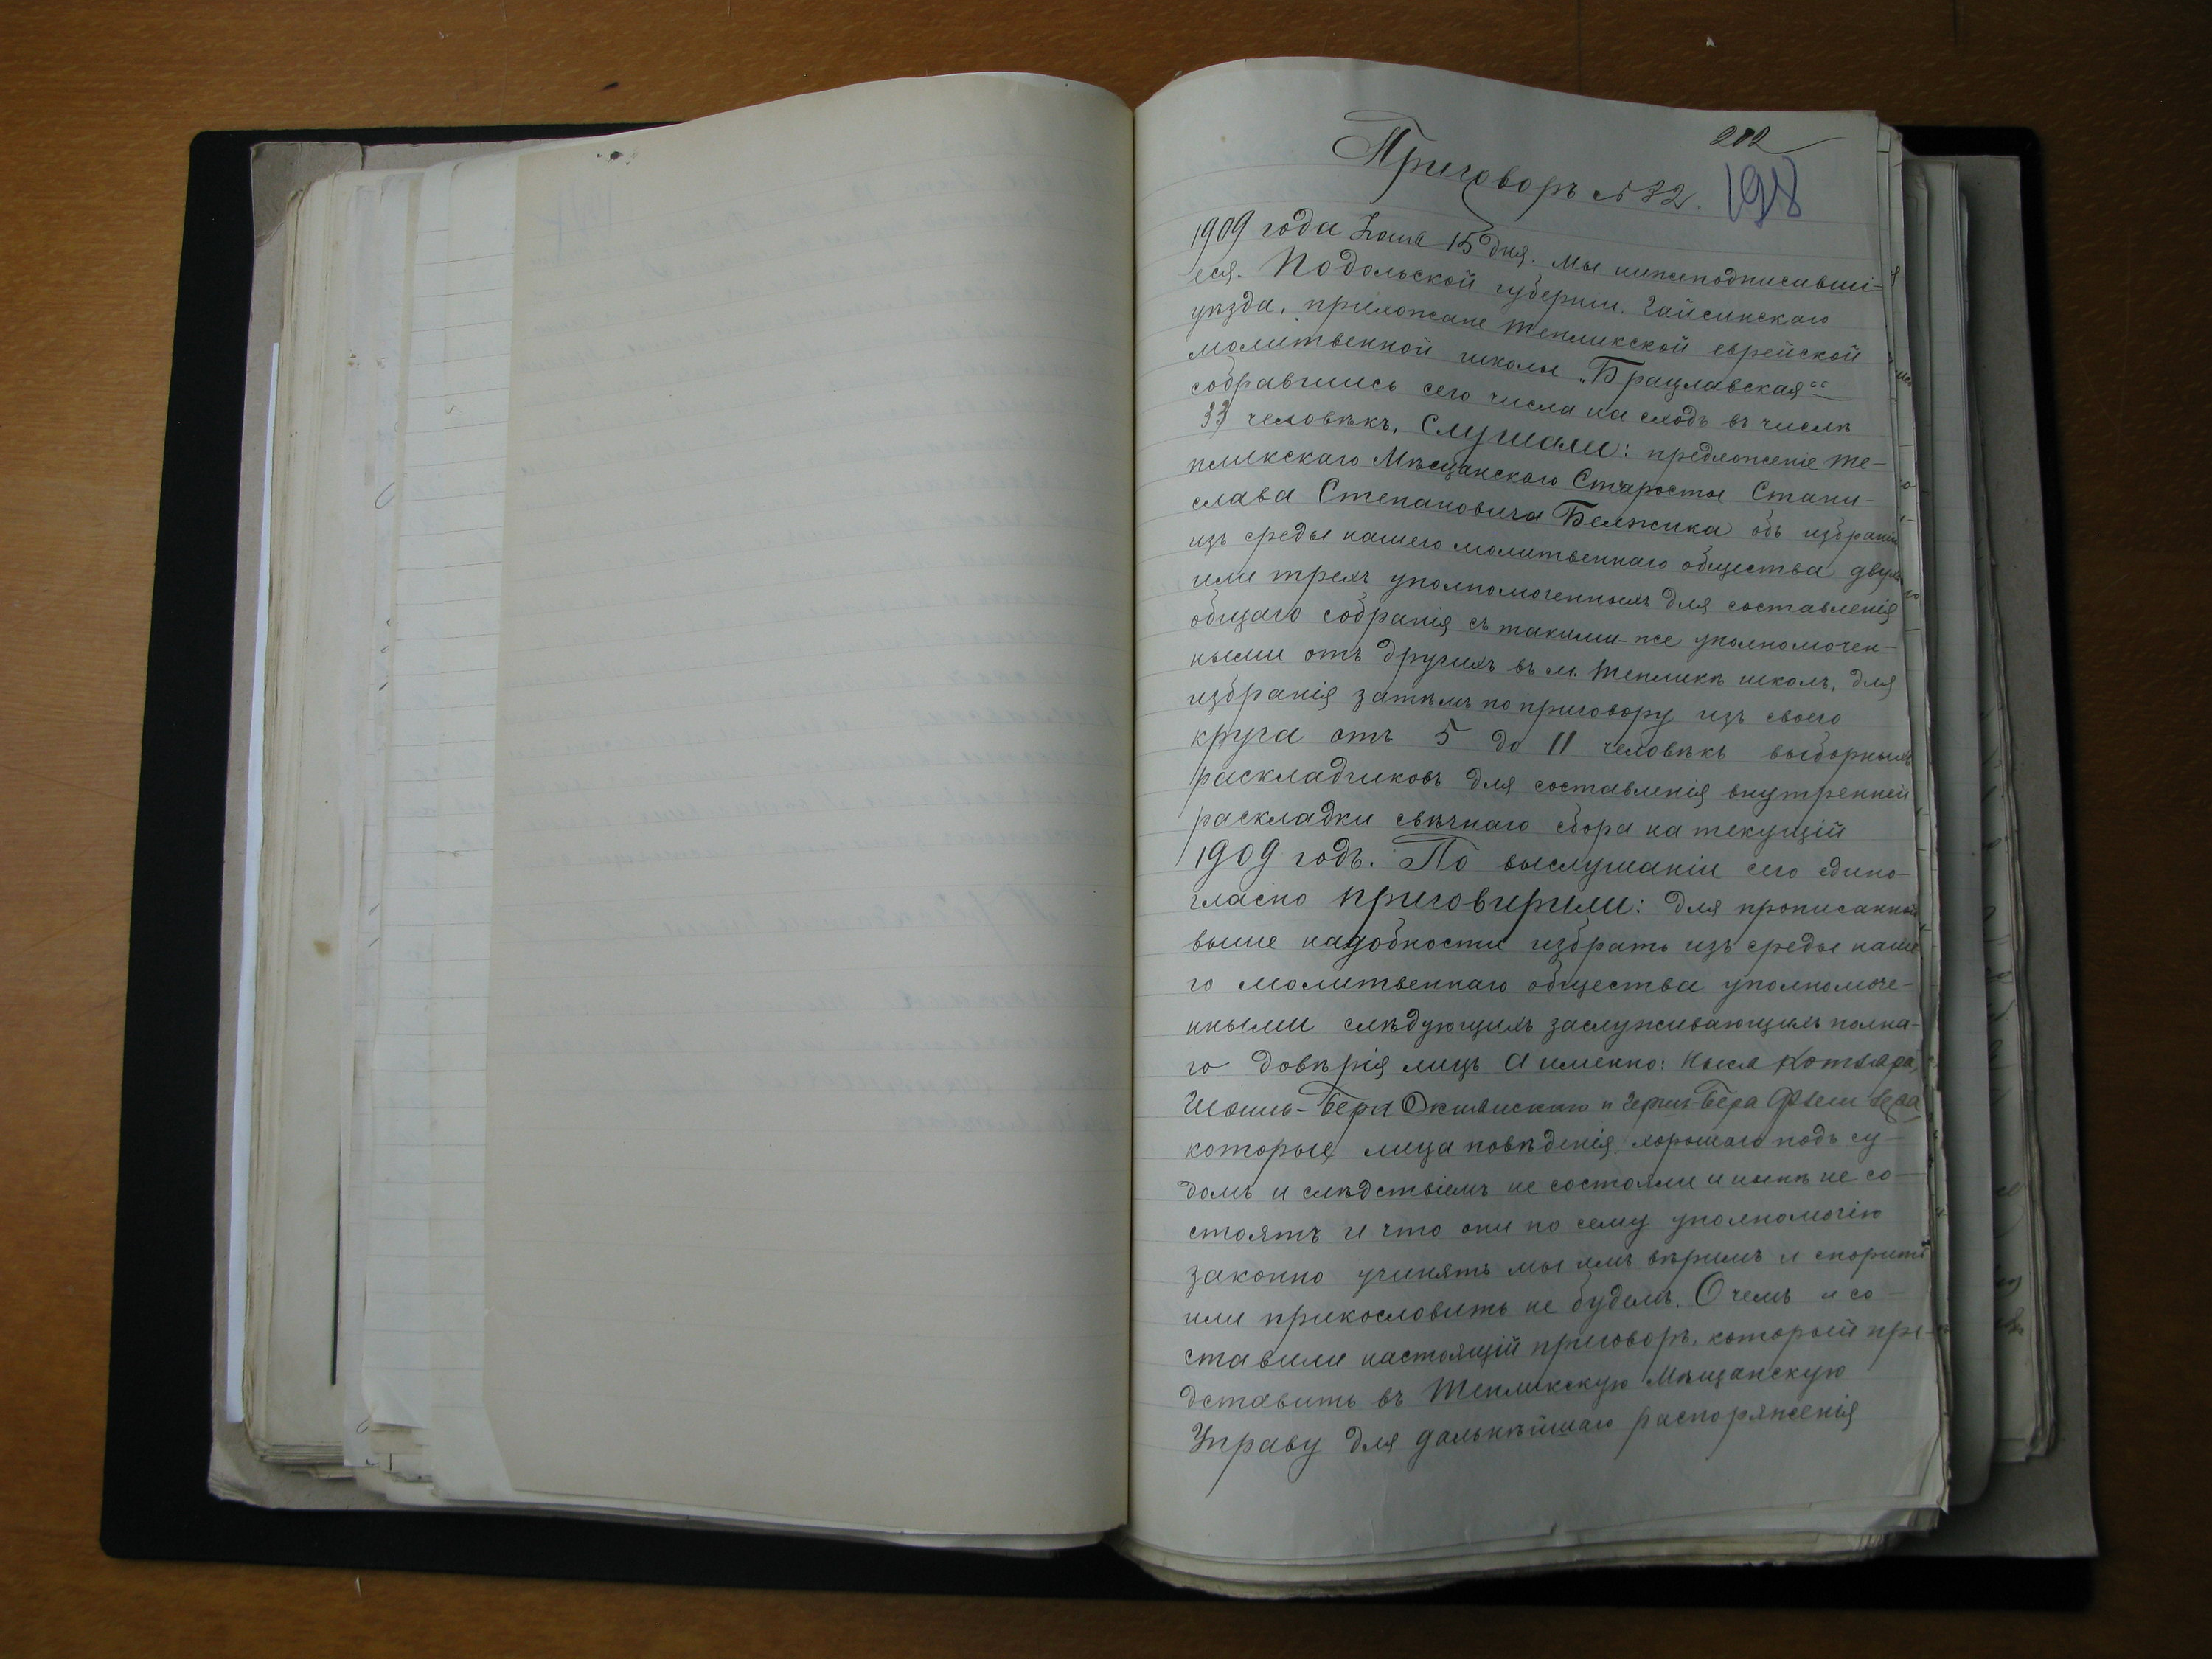 212
Приговоръ №32. 198
1909 года 15 дня. Мы нижеподписавші-
еся. Подольской губерніи. Гайсинскаго
уѣзда, прихожане Тепликской еврейской
молитвенной школы „Брацлавская“
собравшись сего числа на сходъ въ числѣ
33 человѣкъ, Слушали: предложеніе Те-
пликскаго Мѣщанскаго Старосты Стани-
слава Степановича Белжика объ избраніи
изъ среды нашего молитвеннаго общества двухъ
или трехъ уполномоченныхъ для составленія
общаго собранія съ такими-же уполномочен-
ными отъ другихъ въ м. Тепликѣ школъ, для
избранія затѣмъ по приговору изъ своего
круга отъ 5 до 11 человѣкъ выборныхъ
раскладчиковъ для составленія внутренней
раскладки свѣчнаго сбора на текущій
1909 годъ. По выслушаніи сего едино-
гласно приговорили: для прописанной
выше надобности избрать изъ среды наше
го молитвеннаго общества уполномоче-
нными слѣдующихъ заслуживающихъ полна-
го довѣрія лицъ а именно: Котляра,
Бера и Бера
которые лица поведенія хорошаго подъ су-
домъ и слѣдствіемъ не состояли и нынѣ не со-
стоятъ и что они по сему уполномочію
законно учинятъ мы имъ вѣримъ и спорить
или прикословить не будемъ. О чемъ и со-
ставили настоящій приговоръ, который пре-
дставить въ Тепликскую Мѣщанскую
Управу для дальнѣйшаго распоряженія